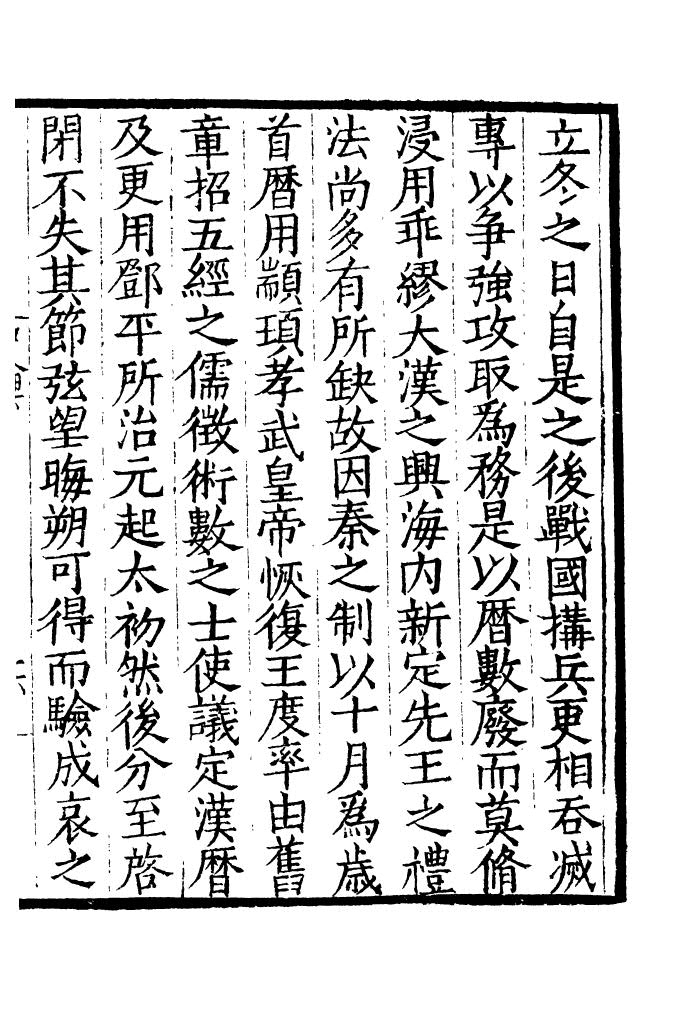 立冬之日自是之後戰國搆兵更相吞滅
專以争強攻取爲務是以暦數廢而莫脩
浸用乖繆大漢之興海内新定先王之禮
法尚多有所缺故因秦之制以十月爲歳
首暦用顓頊孝武皇帝恢復王度率由舊
章招五經之儒徴術數之士使議定漢暦
及更用鄧平所治元起太初然後分至啓
閉不失其節弦望晦朔可得而驗成哀之